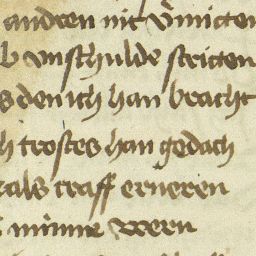 andren nit v̈micten
b vnschulde stricten
s den ich han bracht
h trostes han gedach
als craff erneren
minne wern